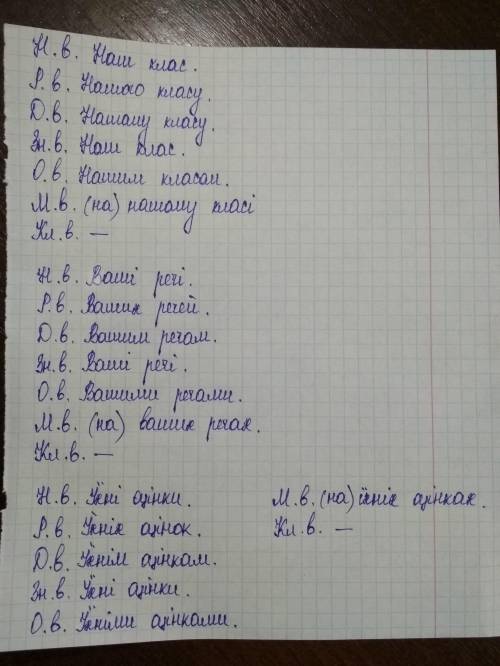 Н.в. Наш клас.
Р.в. Нашого класу.
Д.в. Нашому класу.
Зн.в. Наш клас.
О.в. Нашим класом.
М.в. (на) нашому класі
Кл.в. —
Н.в. Ваші речі.
Р.в. Ваших речей.
Д.в. Вашим речам.
Зн.в. Ваші речі.
О.в. Вашими речами.
М.в. (на) ваших речах.
Кл.в. —
Н.в. Їхні оцінки.
Р.в. Їхніх оцінок.
Д.в. Їхнім оцінкам.
Зн.в. Їхні оцінки.
О.в. Їхніми оцінками.
М.в. (на) їхніх оцінках.
Кл.в. —